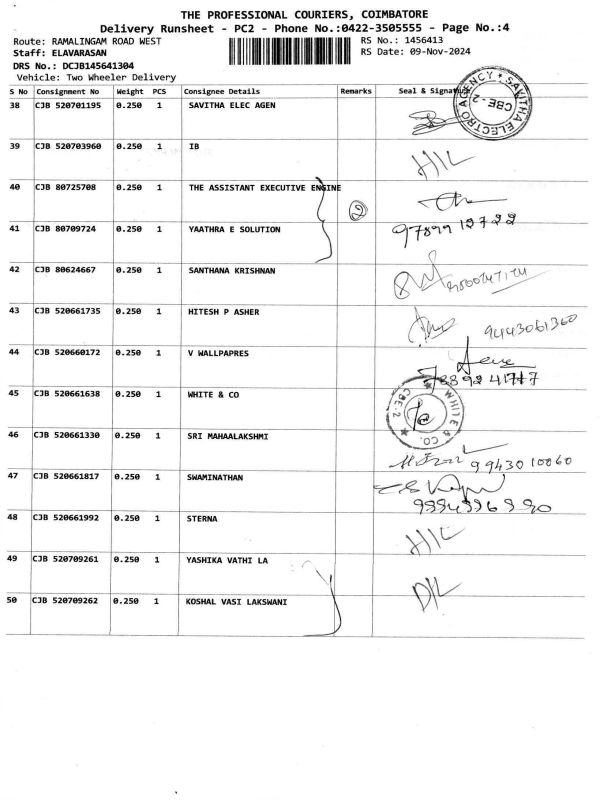 THE PROFESSIONAL COURIERS, COIMBATORE
Delivery Runsheet - PC2 - Phone No.:0422-3505555 - Page No.:4
Route: RAMALINGAM ROAD WEST RS No.: 1456413
Staff: ELAVARASAN RS Date: 09-Nov-2024
DRS No.: DCJB145641304
Vehicle: Two Wheeler Delivery
S No Consignment No Weight PCS Consignee Details Remarks Seal & Signature
38 CJB 520701195 0.250 1 SAVITHA ELEC AGEN
SAKITHA ELECTRO AGENCY ★ CBE-2
39 CJB 520703960 0.250 1 IB H/L
40 CJB 80725708 0.250 1 THE ASSISTANT EXECUTIVE ENGINE
2
41 CJB 80709724 0.250 1 YAATHRA E SOLUTION
42 CJB 80624667 0.250 1 SANTHANA KRISHNAN
43 CJB 520661735 0.250 1 HITESH P ASHER 9443061360
44 CJB 520660172 0.250 1 V WALLPAPRES
45 CJB 520661638 0.250 1 WHITE & CO
★ WHITE & CO. ★ CBE-2
46 CJB 520661330 0.250 1 SRI MAHAALAKSHMI 9943010060
47 CJB 520661817 0.250 1 SWAMINATHAN
48 CJB 520661992 0.250 1 STERNA H/L
49 CJB 520709261 0.250 1 YASHIKA VATHI LA
D/L
50 CJB 520709262 0.250 1 KOSHAL VASI LAKSWANI